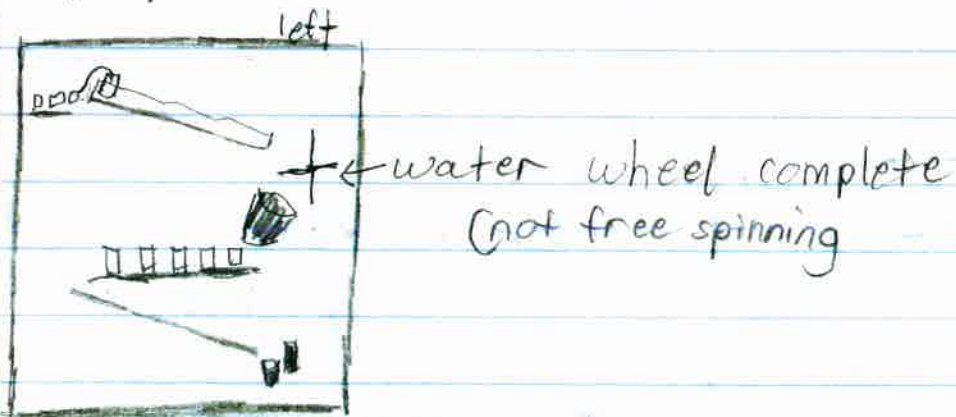 left
water wheel complete
(not free spinning